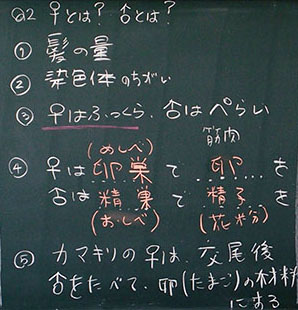 Q2 ♀とは？ ♂とは？
① 髪の量
② 染色体のちがい
③ ♀はふっくら、♂はぺらい
筋肉
(めしべ)
④ ♀は卵巣で 卵 を
♂は精巣で 精子 を
(おしべ) (花粉)
⑤ カマキリの♀は、交尾後
♂をたべて、卵(たまご)の材料
にある